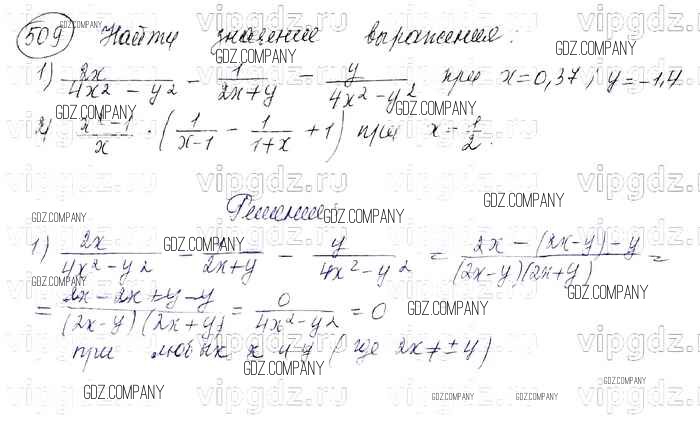 509 Найти значение выражения:
1) 2x/(4x² - y²) - 1/(2x+y) - y/(4x² - y²) при x=0,37, y=-1,4
2) (x² - 1)/x · (1/(x-1) - 1/(1+x) + 1) при x - 1/2.
Решение
1) 2x/(4x² - y²) - 1/(2x+y) - y/(4x² - y²) = (2x - (2x-y) - y)/((2x-y)(2x+y)) =
= (2x - 2x + y - y)/((2x-y)(2x+y)) = 0/(4x² - y²) = 0
при любых x и y (где 2x ≠ ± y)
GDZ.COMPANY
vipgdz.ru